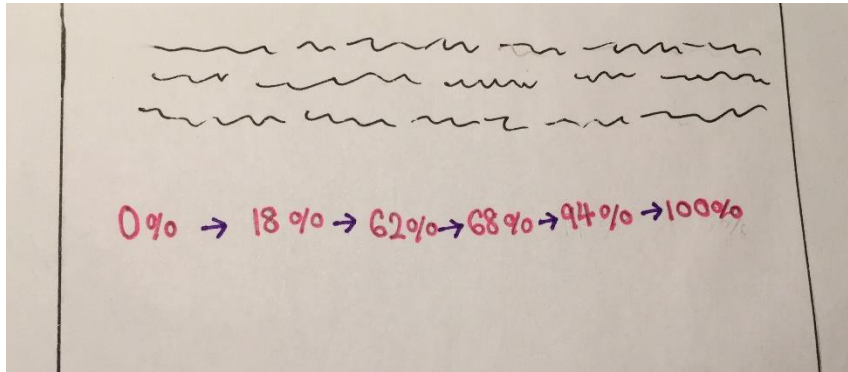 0% → 18% → 62% → 68% → 94% → 100%